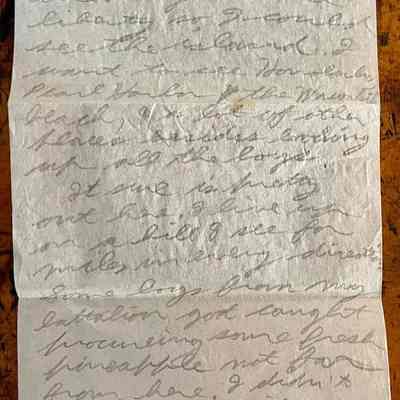 liberty so I could
see the island. I
want to see Honolulu,
Pearl Harbor & the Waikiki
beach, & a lot of other
places besides looking
up all the boys.
It sure is pretty
out here. I live up
on a hill & see for
miles in every direction.
Some boys from my
battalion got caught
procuring some fresh
pineapple not far
from here. I didn't